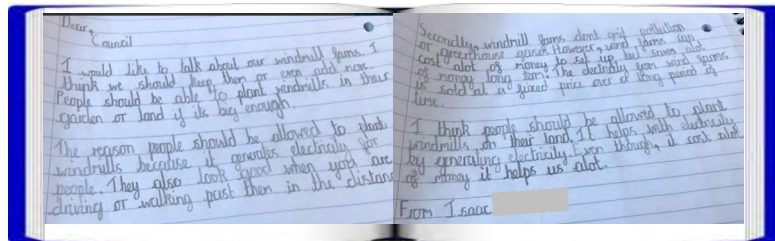 Dear,
Council
I would like to talk about our windmill farms. I
think we should keep them or even add more.
People should be able to plant windmills in their
garden or land if its big enough.
The reason people should be allowed to plant
windmills because it generates electricity for
people. They also look good when your are
driving or walking past them in the distance
Secondly, windmill farms dont emit pollution
or greenhouse gases. However, wind farms can
cost alot of money to set up, but saves alot
of money long term. The electricity from wind farms
is sold at a fixed price over a long period of
time.
I think people should be allowed to plant
windmills on their land. It helps with electricity
by generating electricity. Even though, it cost alot
of money it helps us alot.
From Isaac